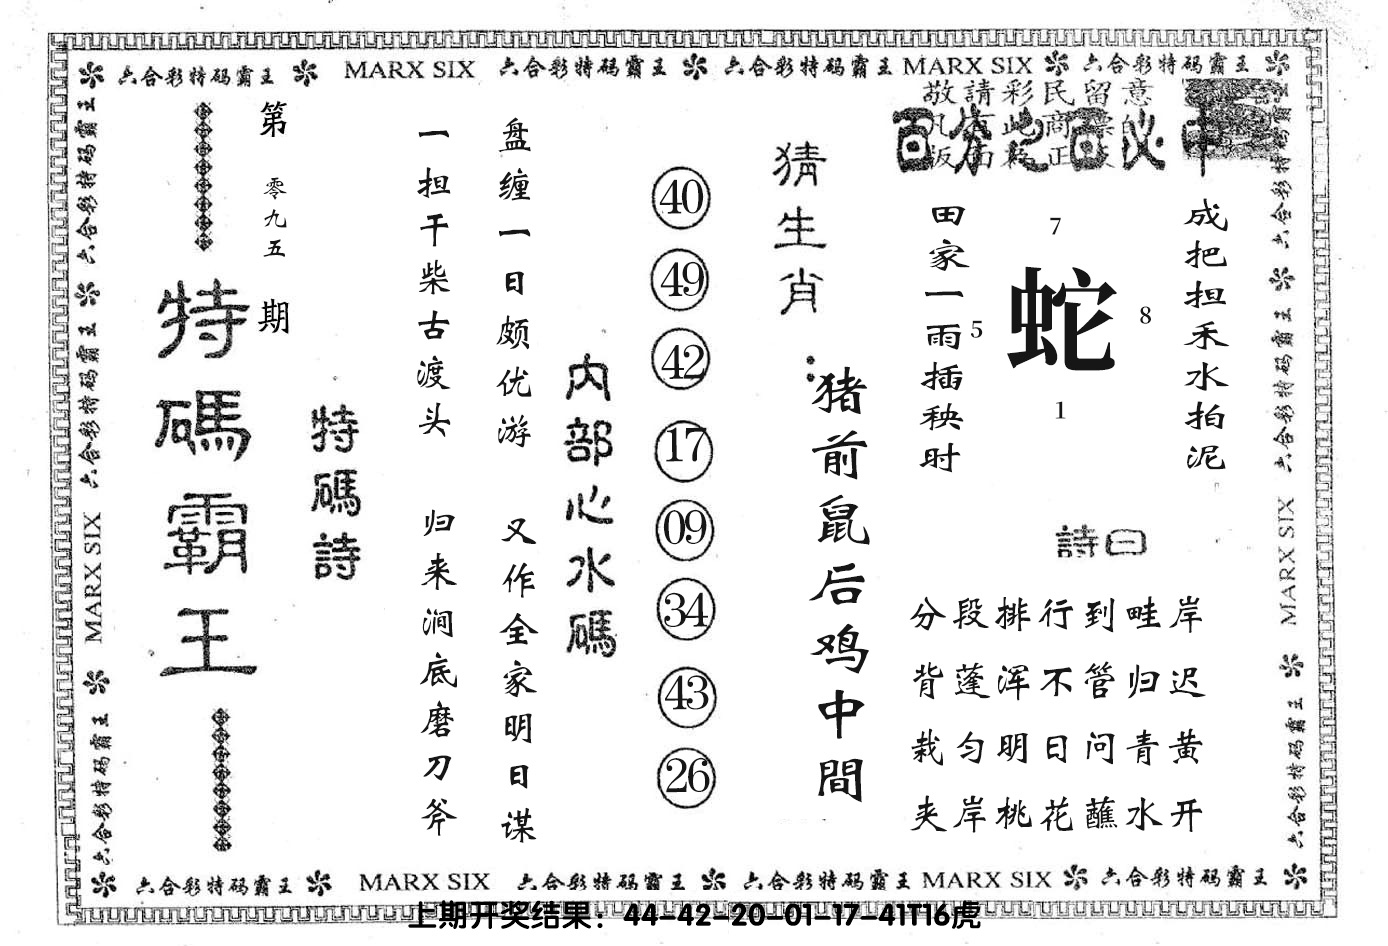 六合彩特码霸王 MARX SIX 六合彩特码霸王 六合彩特码霸王 MARX SIX 六合彩特码霸王
敬請彩民留意
成把担禾水拍泥
田家一雨插秧时
7
5
蛇
8
1
詩曰
分段排行到畦岸
背蓬浑不管归迟
栽匀明日问青黄
夹岸桃花蘸水开
猜生肖：
猪前鼠后鸡中間
40
49
42
17
09
34
43
26
内部心水碼
盘缠一日颇优游 又作全家明日谋
一担干柴古渡头 归来涧底磨刀斧
特碼詩
第零九五期
特碼霸王
六合彩特码霸王 六合彩特码霸王 MARX SIX 六合彩特码霸王
六合彩特码霸王 六合彩特码霸王 MARX SIX 六合彩特码霸王
六合彩特码霸王 MARX SIX 六合彩特码霸王 六合彩特码霸王 MARX SIX 六合彩特码霸王
上期开奖结果：44-42-20-01-17-41T16虎